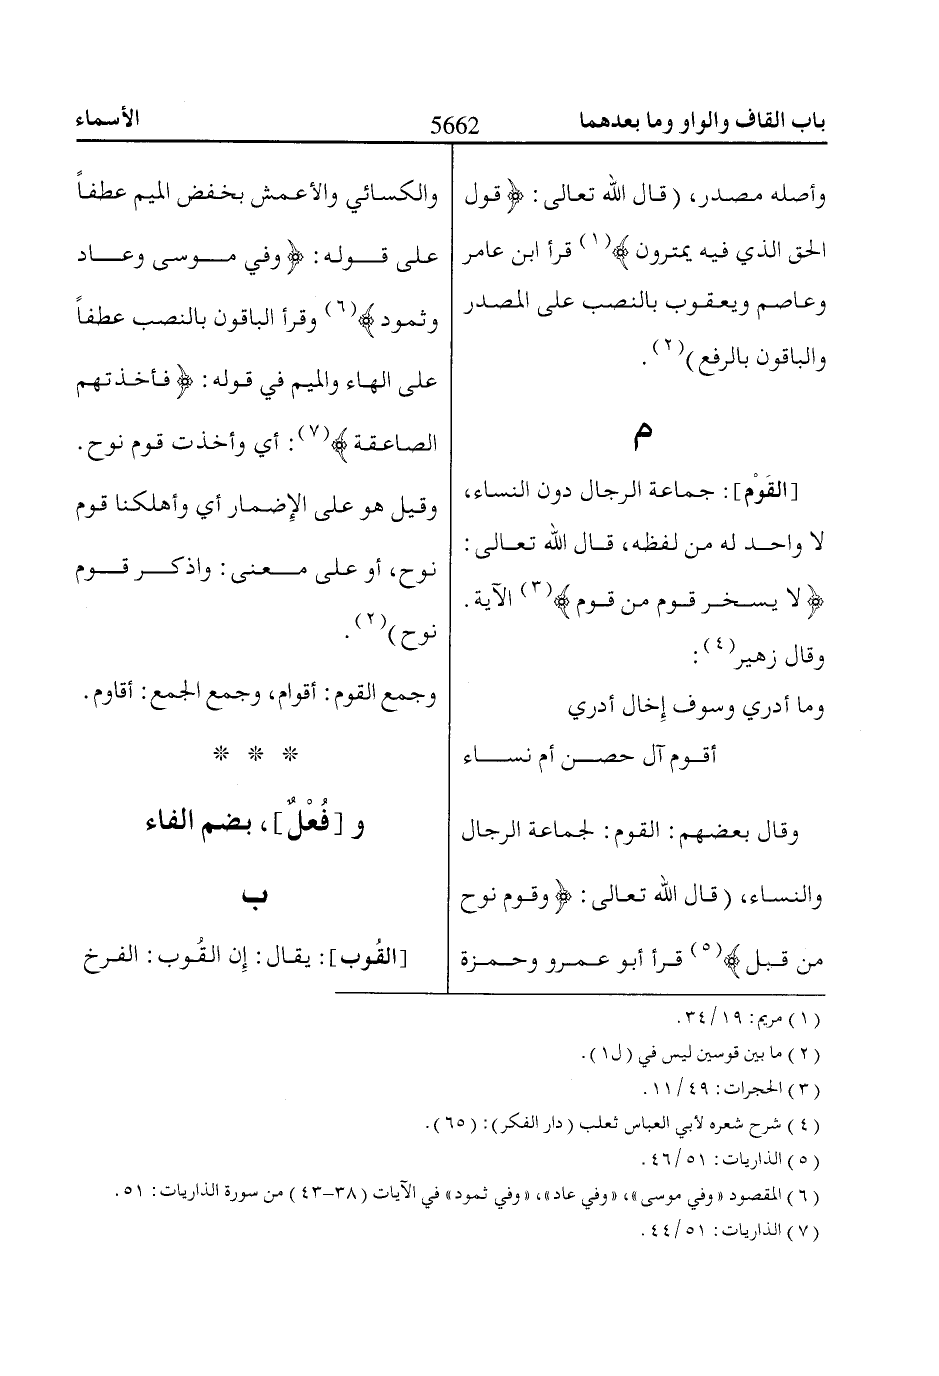 باب القاف والواو وما بعدهما
5662
الأسماء
وأصله مصدر، (قال الله تعالى: ﴿قول
الحق الذي فيه يمترون﴾(١) قرأ ابن عامر
وعاصم ويعقوب بالنصب على المصدر
والباقون بالرفع)(٢).
م
[القَوْم]: جماعة الرجال دون النساء،
لا واحد له من لفظه، قال الله تعالى:
﴿لا يسخر قوم من قوم﴾(٣) الآية.
وقال زهير(٤):
وما أدري وسوف إخال أدري
أقوم آل حصن أم نساء
وقال بعضهم: القوم: لجماعة الرجال
والنساء، (قال الله تعالى: ﴿وقوم نوح
من قبل﴾(٥) قرأ أبو عمرو وحمزة
والكسائي والأعمش بخفض الميم عطفاً
على قوله: ﴿وفي موسى وعاد
وثمود﴾(٦) وقرأ الباقون بالنصب عطفاً
على الهاء والميم في قوله: ﴿فأخذتهم
الصاعقة﴾(٧): أي وأخذت قوم نوح.
وقيل هو على الإضمار أي وأهلكنا قوم
نوح، أو على معنى: واذكر قوم
نوح)(٢).
وجمع القوم: أقوام، وجمع الجمع: أقاوم.
* * *
و [فُعْلٌ]، بضم الفاء
ب
[القُوب]: يقال: إن القُوب: الفرخ
(١) مريم: ١٩/٣٤.
(٢) ما بين قوسين ليس في (ل١).
(٣) الحجرات: ٤٩/١١.
(٤) شرح شعره لأبي العباس ثعلب (دار الفكر): (٦٥).
(٥) الذاريات: ٥١/٤٦.
(٦) المقصود «وفي موسى»، «وفي عاد»، «وفي ثمود» في الآيات (٣٨-٤٣) من سورة الذاريات: ٥١.
(٧) الذاريات: ٥١/٤٤.